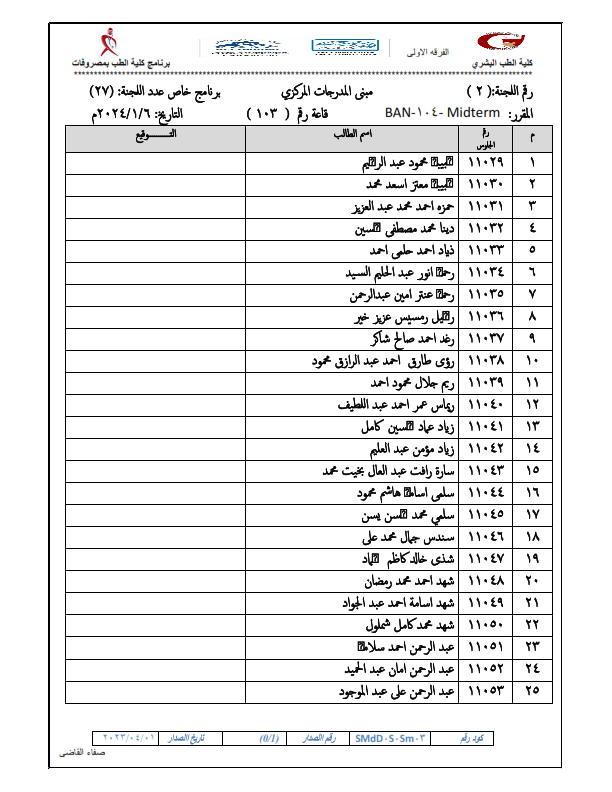 الفرقه الاولى
كلية الطب البشري
برنامج كلية الطب بمصروفات
رقم اللجنة: ( ٢ ) مبنى المدرجات المركزي برنامج خاص عدد اللجنة: (٢٧)
المقرر: BAN-١٠٤- Midterm قاعة رقم ( ١٠٣ ) التاريخ: ٢٠٢٤/١/٦م
م رقم الجلوس اسم الطالب التـــــوقيع
١ ١١٠٢٩ محمود عبد
٢ ١١٠٣٠ معتز اسعد محمد
٣ ١١٠٣١ حمزه احمد محمد عبد العزيز
٤ ١١٠٣٢ دينا محمد مصطفى
٥ ١١٠٣٣ ذياد احمد حلمى احمد
٦ ١١٠٣٤ انور عبد الحليم السيد
٧ ١١٠٣٥ عنتر امين عبدالرحمن
٨ ١١٠٣٦ رمسيس عزيز خير
٩ ١١٠٣٧ رغد احمد صالح شاكر
١٠ ١١٠٣٨ رؤى طارق احمد عبد الرازق محمود
١١ ١١٠٣٩ ريم جلال محمود احمد
١٢ ١١٠٤٠ ريماس عمر احمد عبد اللطيف
١٣ ١١٠٤١ زياد عماد كامل
١٤ ١١٠٤٢ زياد مؤمن عبد العليم
١٥ ١١٠٤٣ سارة رافت عبد العال بخيت محمد
١٦ ١١٠٤٤ سلمى هاشم محمود
١٧ ١١٠٤٥ سلمي محمد يسن
١٨ ١١٠٤٦ سندس جمال محمد على
١٩ ١١٠٤٧ شذى خالد كاظم
٢٠ ١١٠٤٨ شهد احمد محمد رمضان
٢١ ١١٠٤٩ شهد اسامة احمد عبد الجواد
٢٢ ١١٠٥٠ شهد محمد كامل شملول
٢٣ ١١٠٥١ عبد الرحمن احمد
٢٤ ١١٠٥٢ عبد الرحمن امان عبد الحميد
٢٥ ١١٠٥٣ عبد الرحمن على عبد الموجود
كود رقم SMdD٠S٠Sm٠٣ رقم الصدار (0/1) تاريخ الصدار ٢٠٢٣/٠٤/٠١
صفاء القاضى